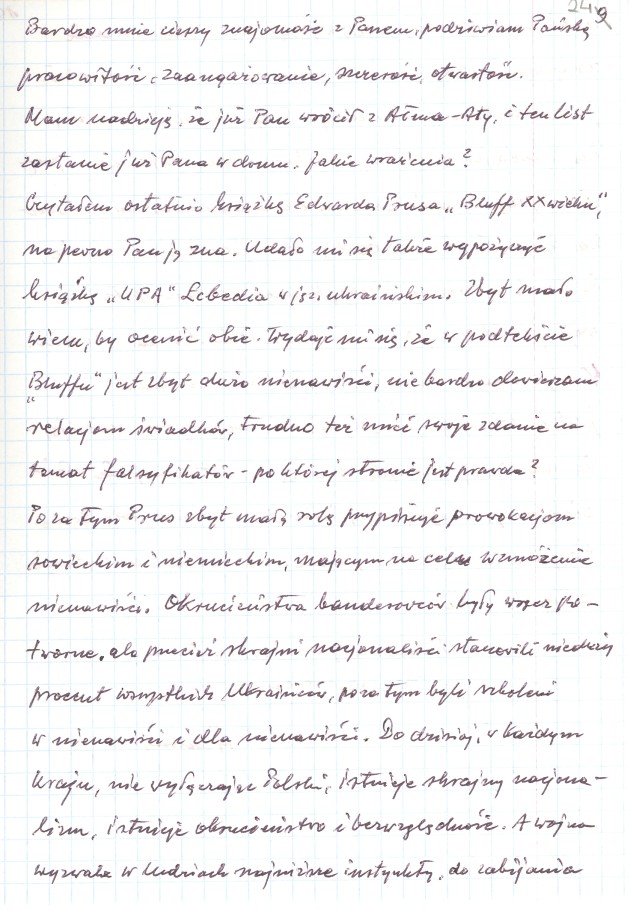 249
Bardzo mnie cieszy znajomość z Panem, podziwiam Pańską
pracowitość, zaangażowanie, szczerość, otwartość.
Mam nadzieję, że już Pan wrócił z Ałma-Aty, i ten list
zastanie już Pana w domu. Jakie wrażenia?
Czytałem ostatnio książkę Edwarda Prusa „Bluff XX wieku",
na pewno Pan ją zna. Udało mi się także wypożyczyć
książkę „UPA" Lebedia w jęz. ukraińskim. Zbyt mało
wiem, by ocenić obie. Wydaje mi się, że w podtekście
"Bluffu" jest zbyt dużo nienawiści, nie bardzo dowierzam
relacjom świadków, trudno też mieć swoje zdanie na
temat falsyfikatów - po której stronie jest prawda?
Poza tym Prus zbyt małą rolę przypisuje prowokacjom
sowieckim i niemieckim, mającym na celu wzmożenie
nienawiści. Okrucieństwa banderowców były wręcz po-
tworne, ale przecież skrajni nacjonaliści stanowili nieduży
procent wszystkich Ukraińców, poza tym byli szkoleni
w nienawiści i dla nienawiści. Do dzisiaj, w każdym
kraju, nie wyłączając Polski, istnieje skrajny nacjona-
lizm, istnieje okrucieństwo i bezwzględność. A wojna
wyzwala w ludziach najniższe instynkty, do zabijania